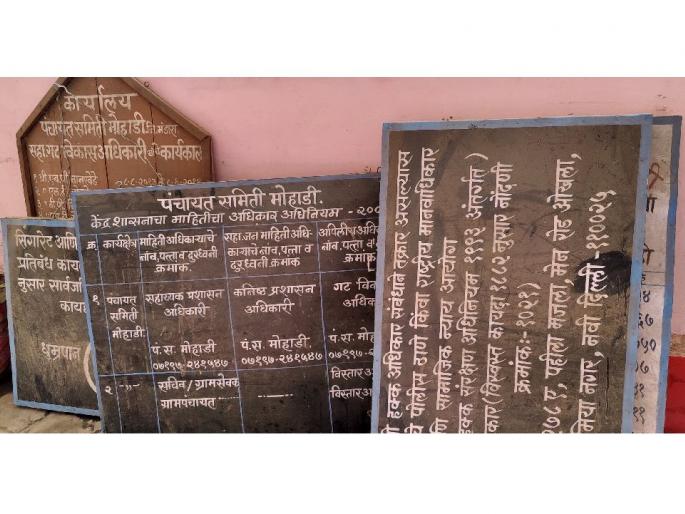 कार्यालय
पंचायत समिती मोहाडी जि. भंडारा
सहा. गट विकास अधिकारी कार्यकाल
सिगारेट आणि
प्रतिबंध काय
नुसार सार्वज
कायद
धुम्रपान
पंचायत समिती मोहाडी.
केंद्र शासनाचा माहितीचा अधिकार अधिनियम - २००
क्र. कार्यक्षेत्र माहिती अधिकायाचे नांव, पत्ता व दुरध्वनी क्रमांक. सहा. जन माहिती अधिकायाचे नांव, पत्ता व दुरध्वनी क्रमांक अपिलीय अधि नांव, पत्ता व क्रमांक
१ पंचायत समिती मोहाडी. सहाय्यक प्रशासन अधिकारी कनिष्ठ प्रशासन अधिकारी गट विक अधिक
पं.स. मोहाडी ०७१९७-२४१५४७ पं.स. मोहाडी ०७१९७-२४१५४७ पं.स. मोह ०७१९७-२४
२ -"- सचिव / ग्रामसेवक ग्रामपंचायत विस्तार अ विस्तार अ
हक्क अधिकार संबंधाने तक्रार असल्यास
पोलीस ठाणे किंवा राष्ट्रीय मानवाधिकार
सामाजिक न्याय आयोग
हक्क संरक्षण अधिनियम १९९३ अंतर्गत)
कार (विश्वस्त कायदा १८८२ नुसार नोंदणी
क्रमांक:- १०२१)
७८ ए, पहीला मजला, मेन रोड ओखला,
मिया नगर, नवी दिल्ली - ११००२५